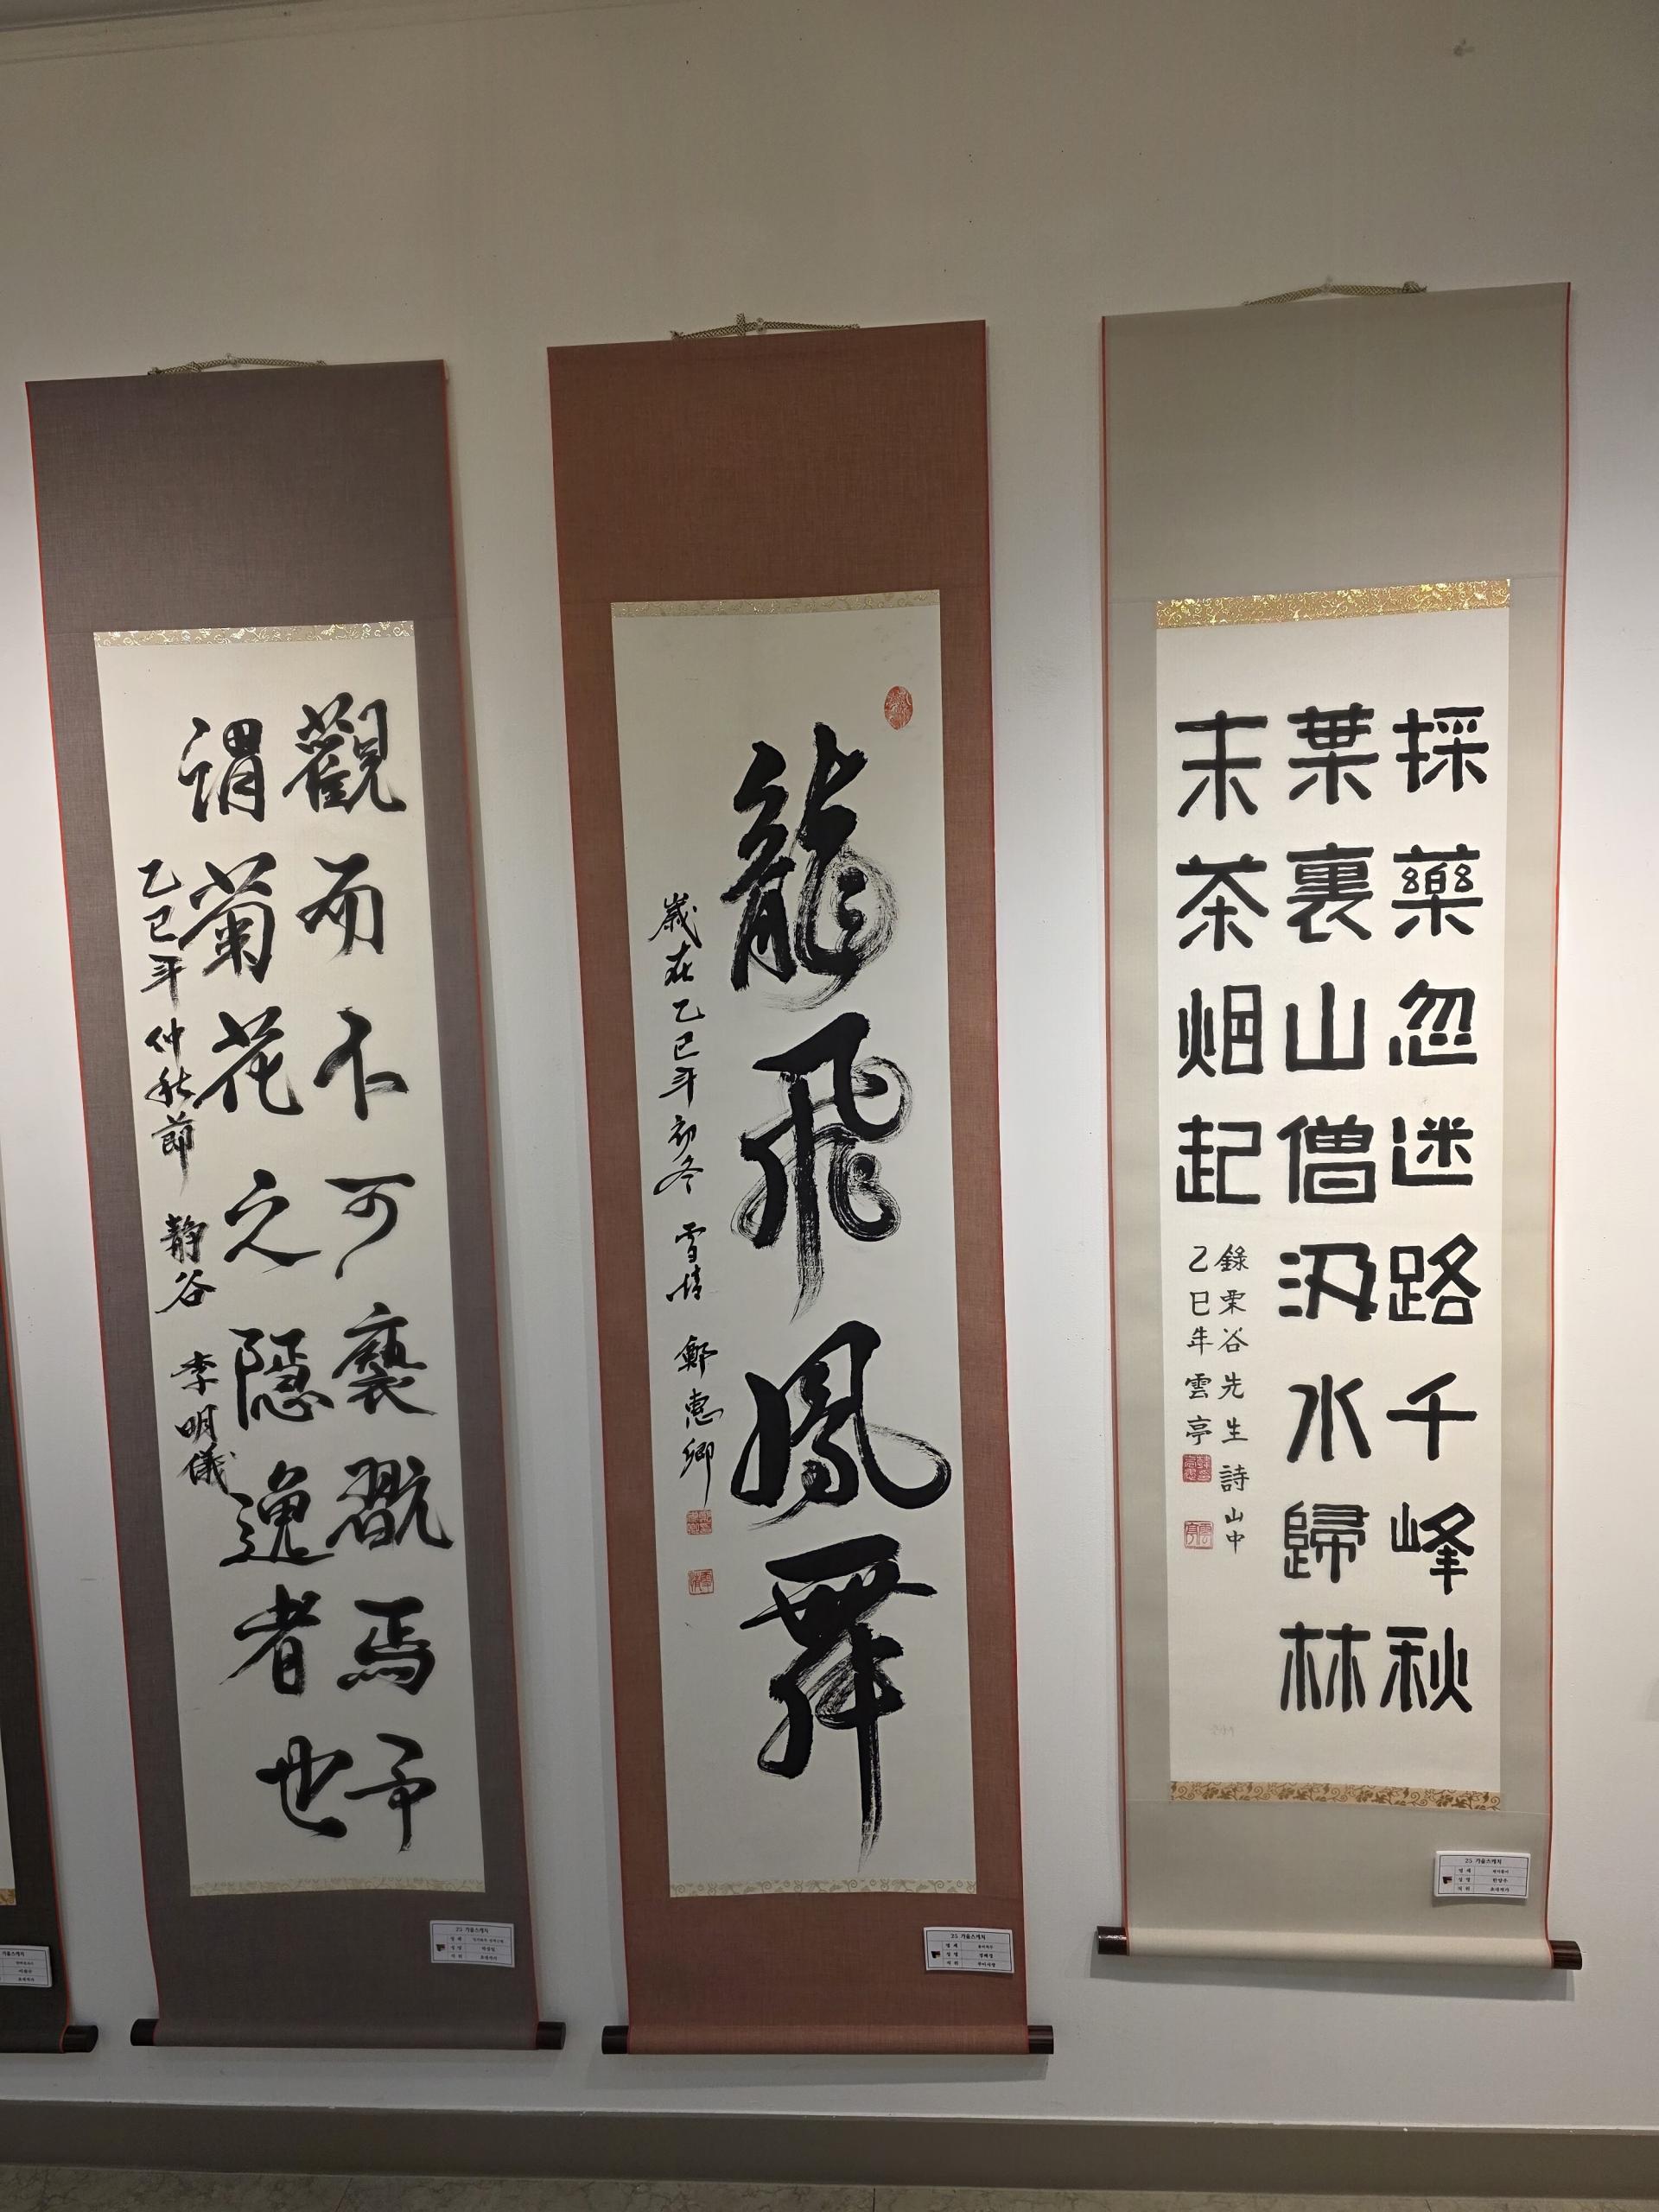 採藥忽迷路千峰秋
葉裏山僧汲水歸林
末茶烟起
錄栗谷先生詩山中
乙巳年雲亭
龍飛鳳舞
歲在乙巳年初冬 雪情 鄭惠卿
觀而不可褻翫焉予
謂菊花之隱逸者也
乙巳年仲秋節 靜谷 李明儀
25 가을스케치
25 가을스케치
25 가을스케치